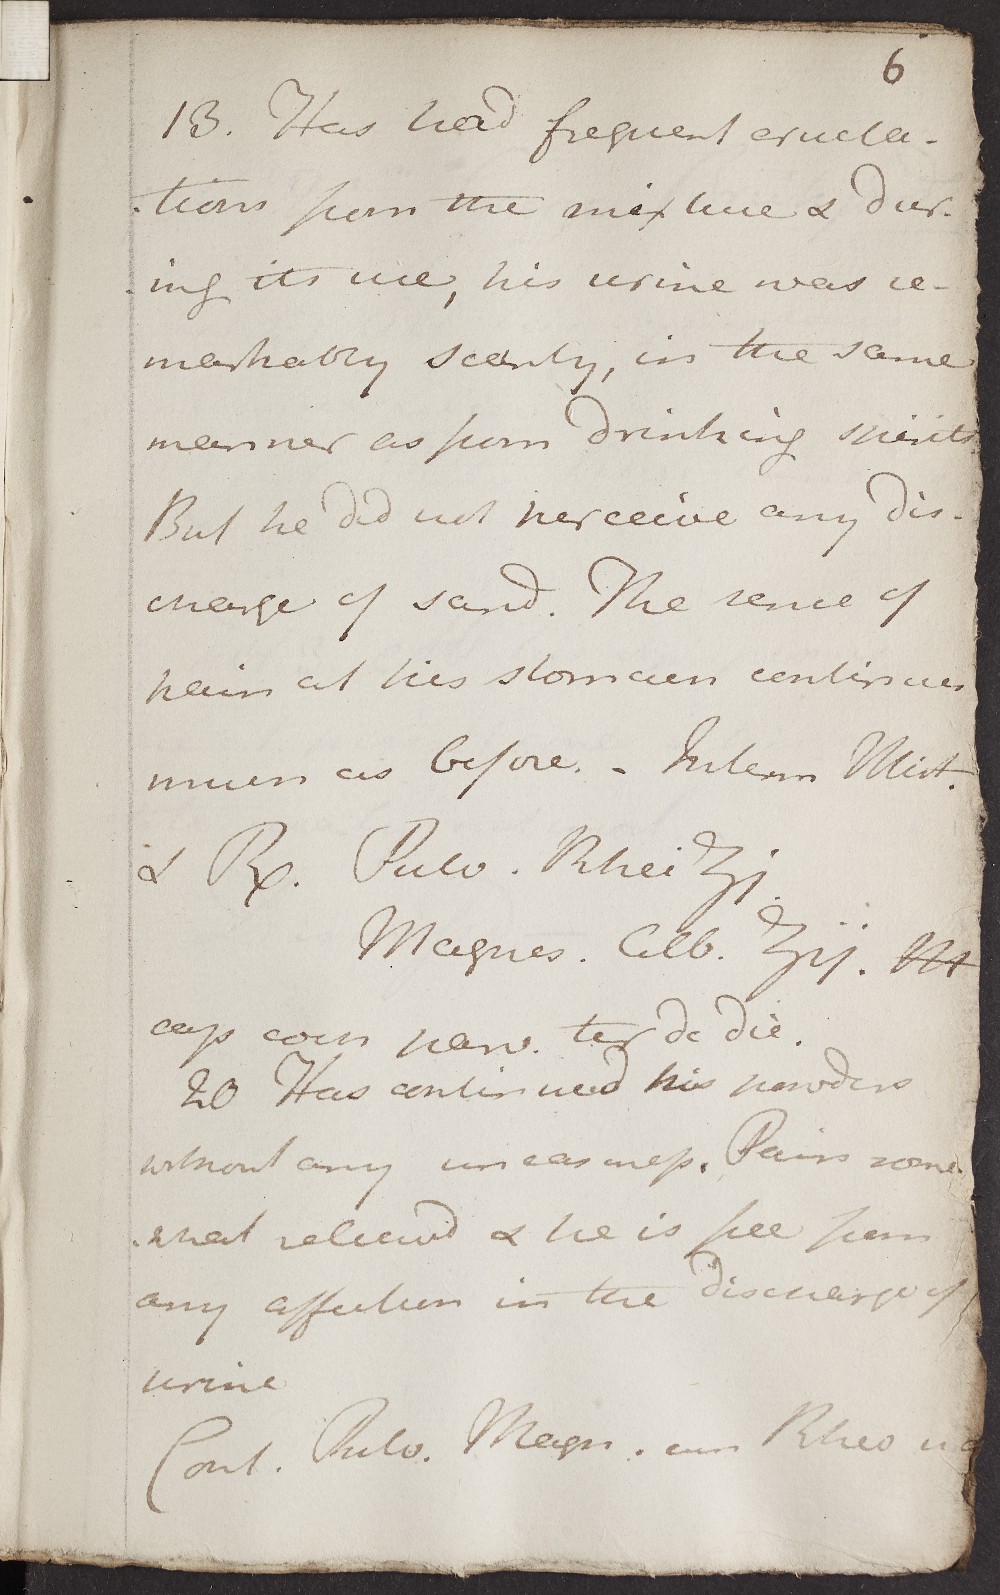 6
13. Has had frequent eructa-
-tions from the mixture & dur-
-ing its use, his urine was re-
markably scanty, in the same
manner as from drinking spirits
But he did not perceive any dis-
charge of sand. The sense of
pain at his stomach continues
much as before. - Interm Mist.
& Rx. Pulv. Rhei ʒj.
Magnes. Alb. ʒij. M
cap coch parv. ter de die.
20 Has continued his powders
without any uneasiness. Pains some
-what relieved & he is free from
any affection in the discharge of
urine
Cont. Pulv. Magn. cum Rheo